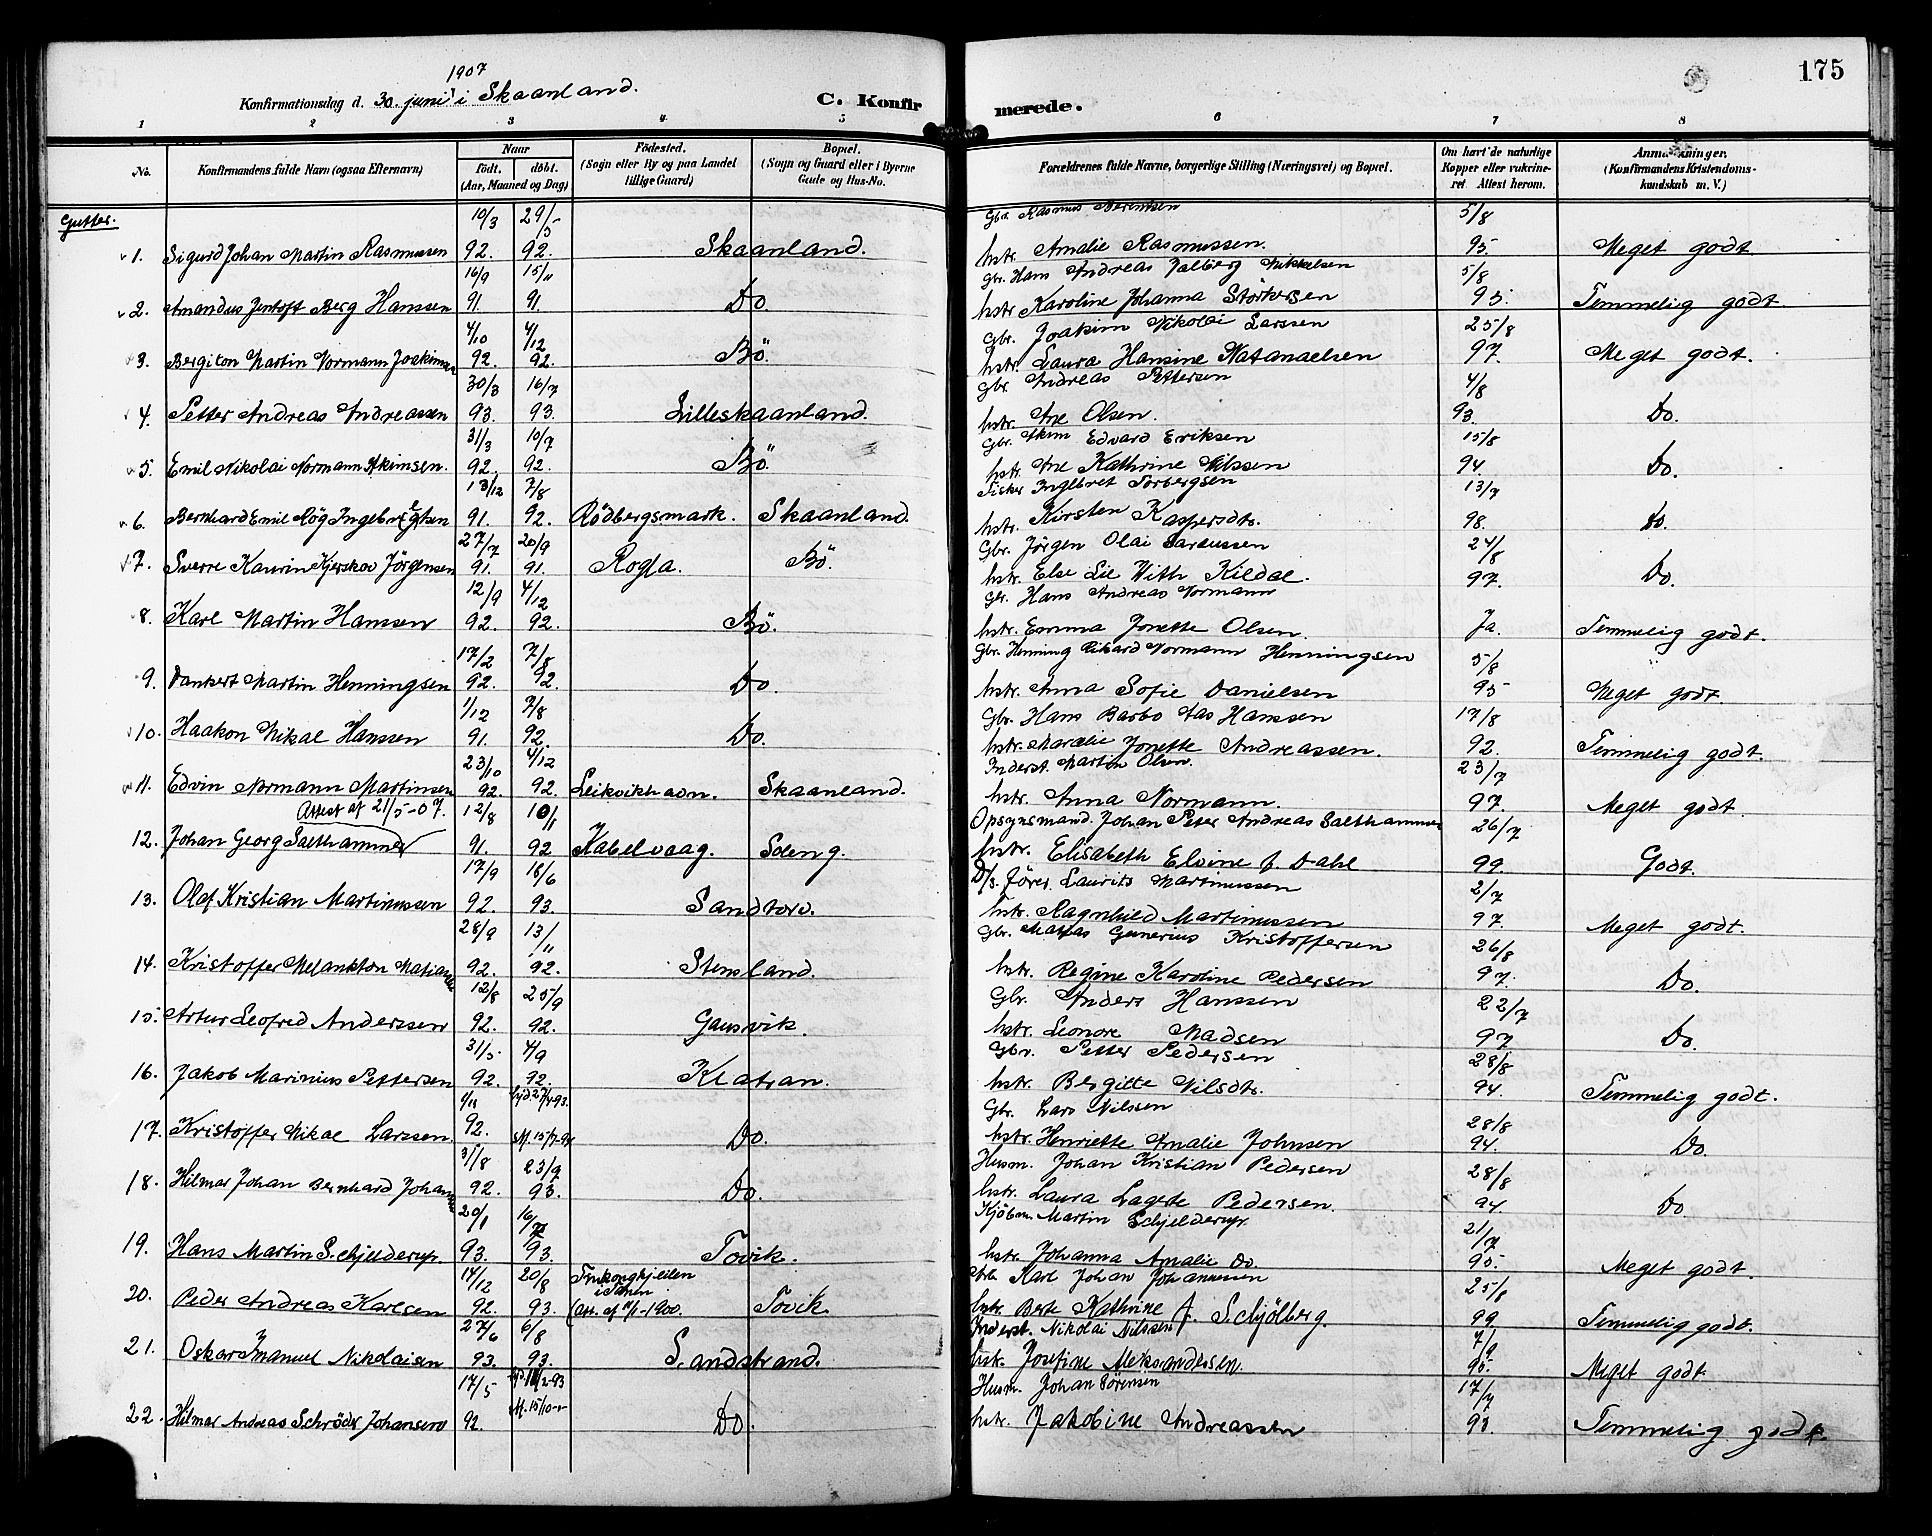 175
1907
Konfirmationsdag d. 30. juni i Skaanland.
C. Konfirmerede.
1 2 3 4 5 6 7 8
No.
Konfirmandens fulde Navn (ogsaa Efternavn)
Naar
födt. döbt.
(Aar, Maaned og Dag)
Födested.
(Sogn eller By og paa Landet
tillige Gaard)
Bopæl.
(Sogn og Gaard eller i Byerne
Gade og Hus-No.
Forældrenes fulde Navne, borgerlige Stilling (Næringsvei) og Bopæl.
Om havt de naturlige
Kopper eller vakcine-
ret. Attest herom.
Anmærkninger.
(Konfirmandens Kristendoms-
kundskab m. V.)
Gutter.
10/3 29/5 Gbr. Rasmus Berentsen 5/8
1. Sigurd Johan Martin Rasmussen 92. 92. Skaanland. hstr. Amalie Rasmussen. 95. Meget godt.
16/9 15/11 Gbr. Hans Andreas Jalberg Mikkelsen 5/8
2. Amandus Jentoft Berg Hanssen 91. 91. Do. hstr Karoline Johanna Störkersen 95. Temmelig godt
4/10 4/12 Gbr. Joakim Nikolai Larssen 25/8
3. Bergiton Martin Normann Joakimsen 92. 92. Bö. hstr. Laura Hansine Natanaelsen 97. Meget godt.
30/3 16/7 Gbr Andreas Pettersen 4/8
4. Petter Andreas Andreassen 93. 93. Lilleskaanland. hstr. Ane Olsen. 93. Do.
31/3 10/7 Gbr. Akim Edvard Eriksen 15/8
5. Emil Nikolai Normann Akimsen. 92. 92. Bö. hstr. Ane Kathrine Nilssen 94. Do.
13/12 7/8 Fisker Ingebret Torbergsen 13/7
6. Bernhard Emil Høg Ingebrigtsen 91. 92. Rödbergsmark. Skaanland. hstr. Kirsten Kaspersdtr. 98. Do.
27/7 20/9 Gbr. Jörgen Olai 24/8
7. Sverre Kaurin Kjerskov Jörgensen 91. 91. Rogla. Bö. hstr. Else Lie With Kildal. 97. Do.
12/9 4/12 Gbr. Hans Andreas Normann
8. Karl Martin Hanssen 92. 92. Bö. hstr. Emma Jonette Olsen. Ja. Temmelig godt.
17/2 7/8 Gbr. Henning Rikard Normann Henningsen 5/8
9. Dankert Martin Henningsen 92. 92. Do. hstr. Anna Sofie Danielsen 95 Meget godt.
1/12 7/8 Gbr. Hans Barbo Aas Hanssen 17/8
10. Haakon Mikal Hanssen 91. 92. Do. hstr. Jonette Andreassen. 92. Temmelig godt.
23/10 4/12 Inderst. Martin Olsen. 23/7
11. Edvin Normann Martinsen 92. 92. Leikvikhavn. Skaanland. hstr. Anna Normann. 97. Meget godt.
Attest af 21/5-07. 12/8 10/1 Opsynsmand. Johan Peter Andreas Salthammer 26/7
12. Johan Georg Salthammer 91. 92 Kabelvaag. Soleng. hstr. Elisabeth Elvine f. Dahl 99. Godt.
17/9 18/6 D/s. Förer. Laurits Martinussen 2/7
13. Olaf Kristian Martinussen 92. 93. Sandtorv. hstr. Ragnhild Martinussen 97. Meget godt.
28/9 13/11 Gbr. Matias Gunerius Kristoffersen 26/8
14. Kristoffer Melankton Matiassen 92. 92. Stensland. hstr. Regine Karoline Pedersen 97. Do.
12/8 25/9 Gbr. Anders Hanssen 22/7
15. Artur Leofred Anderssen 92. 92. Gausvik. hstr. Leonore Madsen 97 Do.
31/5 4/9 Gbr. Petter Pedersen 28/8
16. Jakob Marinius Pettersen 92. 92. Klatran. hstr. Bergitte Nilsdtr. 94. Temmelig godt.
1/11 27/4-93. Gbr. Lars Nilssen 28/8
17. Kristoffer Mikal Larssen. 92. Do. hstr. Henriette Amalie Johnsen 94. Do.
31/8 23/9 Husm. Johan Kristian Pedersen 28/8
18. Hilmar Johan Bernhard Johansen 92. 93. Do. hstr. Laura Lagerte Pedersen. 94. Do
20/1 16/7 Kjöbm. Martin Schjelderup. 21/7
19. Hans Martin Schjelderup. 93. 93. Tovik. hstr. Johanna Amalie Do. 95. Meget godt.
14/12 20/8 i Tanen Karl Johan Johannessen 25/8
20. Peder Andreas Karlsen 92. 93. (att. af 11/1-1900. Tovik. hstr. Berte Kathrine f. Schjölberg. 99. Temmelig godt.
27/6 6/8 Inderst. Nikolai Nilssen 7/9
21. Oskar Imanuel Nikolaisen 93. 93. Sandstrand. hstr. Josefine Aleksandersen. 95. Meget godt.
17/5 Husm. Johan Sörensen 17/7
22. Hilmar Andreas Schröder Johansen 92. Do. hstr. Jakobine Andreassen 93. Temmelig godt.